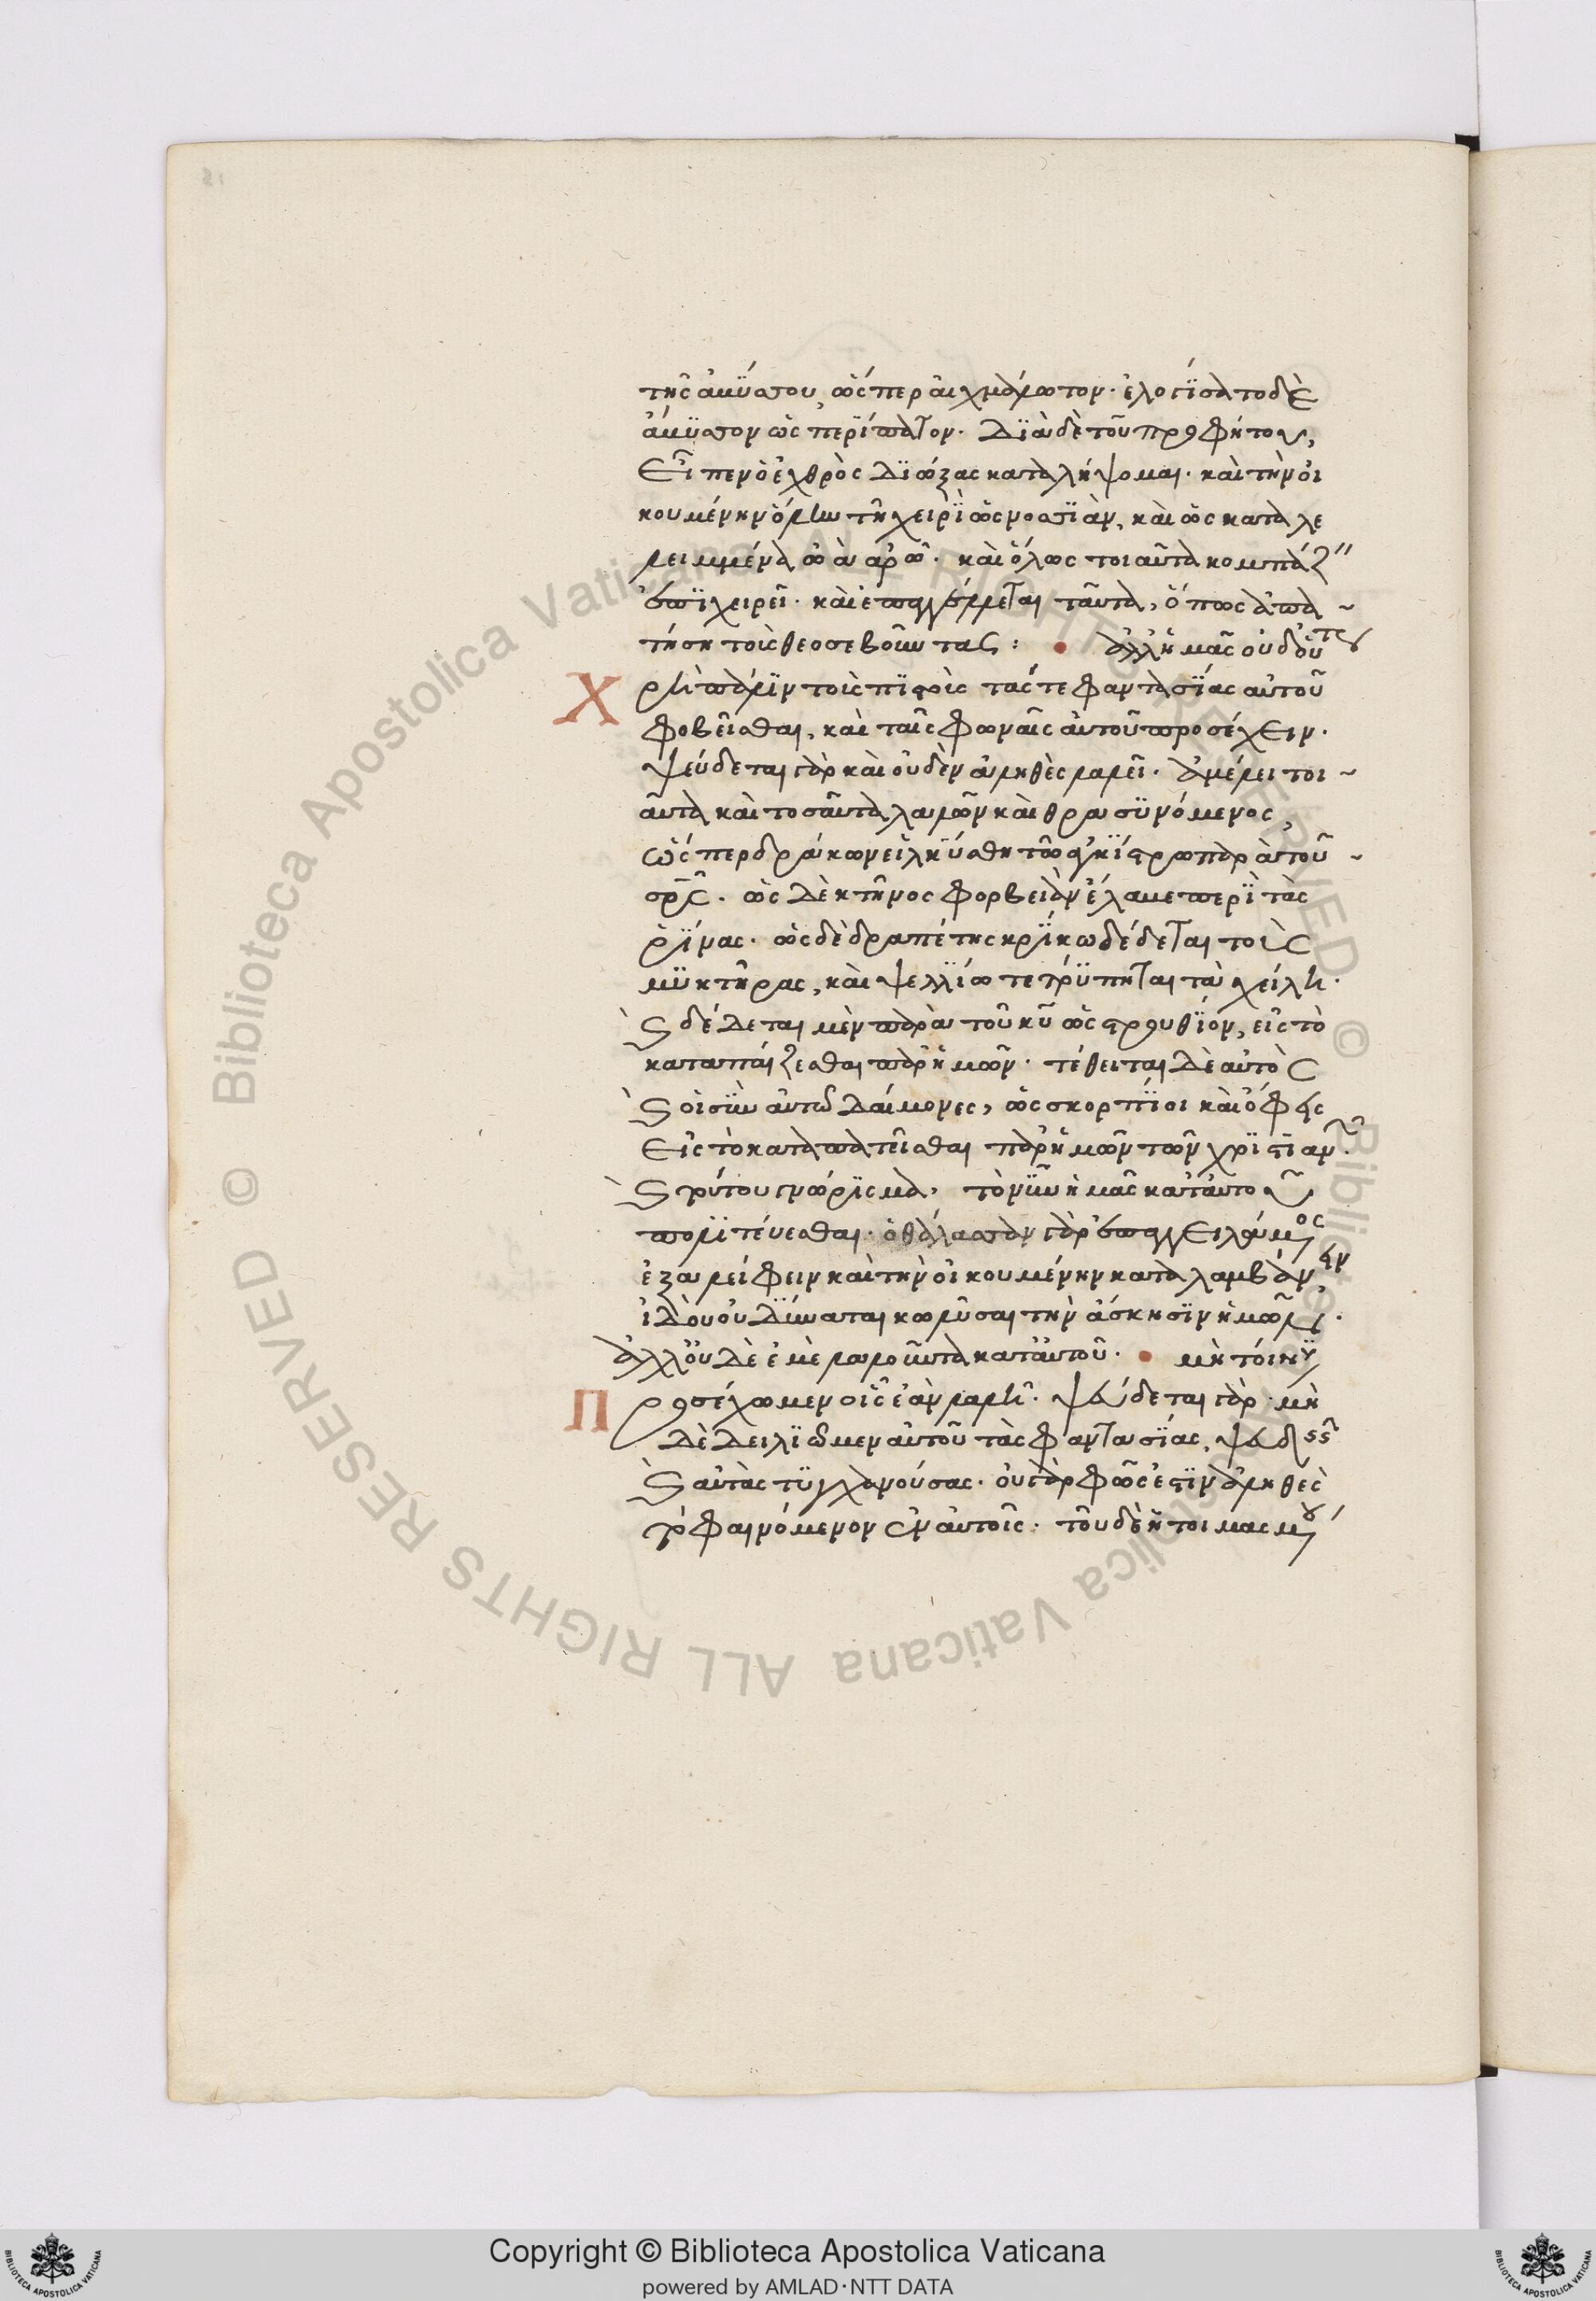 τῆς ἀβύσσου, ὥσπερ αἰχμάλωτον. ἐλογίσατο δὲ
ἄβϋσσον ὡς περίπατον. Διὰ δὲ τοῦ προφήτου,
Εἶπεν ὁ ἐχθρὸς Διώξας καταλήψομαι. καὶ τὴν οἰ
κουμένην ὅλην τῇ χειρὶ ὡς νοσσϊὰν, καὶ ὡς καταλε
λειμμένα ὠὰ ἀρῶ. καὶ ὅλως τοιαῦτα κομπάζ
ἐπϊχειρεῖ. καὶ ἐπαγγέλλεται ταῦτα, ὅπως ἀπα
τήση τοὺς θεοσεβοῦντας: ἀλλ' ἡμᾶς οὐδ' οὕτως
Χρὴ πάλϊν τοὺς πϊστοὺς τάς τε φαντασΐας αὐτοῦ
φοβεῖσθαι, καὶ ταῖς φωναῖς αὐτοῦ προσέχειν.
ψεύδεται γὰρ καὶ οὐδὲν ἀληθὲς λαλεῖ. ἀμέλει τοι
αῦτα καὶ τοσαῦτα λαλῶν καὶ θρασϋνόμενος,
ὥσπερ δράκων εἱλκύσθη τῶ ἀγκίστρω παρὰ τοῦ
σρς. ὡς Δὲ κτῆνος φορβειὰν ἔλαβε περὶ τὰς
ῥῖνας. ὡς δὲ δραπέτης κρίκω δέδεται τοὺς
μϋκτῆρας, καὶ ψελλΐω τετρύπηται τὰ χείλη.
Ϛ δέΔεται μὲν παρὰ τοῦ κυ ὡς στρουθίον, εἰς τὸ
καταπαίζεσθαι παρ' ἡμῶν. τέθειται Δὲ αὐτὸς
Ϛ οἱ σὺν αὐτῶ Δαίμονες, ὡς σκορπίοι καὶ ὄφεις
Εἰς τὸ καταπατεῖσθαι παρ' ἡμῶν τῶν χρϊστϊαν.
Ϛ τούτου γνώρισμα, τὸ νῦν ἡμᾶς κατ' αὐτοῦ
πολϊτεύεσθαι. ὁ θάλασσαν γὰρ ἐπαγγειλάμος
ἐξαλείφειν καὶ τὴν οἰκουμένην καταλαμβάνειν,
ἰΔοὺ οὐ Δύναται κωλῦσαι τὴν ἄσκησϊν ἡμῶν.
ἀλλ' οὐΔὲ ἐμὲ λαλοῦντα κατ' αὐτοῦ. μὴ τοίνυ
Προσέχωμεν οἷς ἐὰν λαλῆ. ψεύδεται γάρ. μὴ
Δὲ Δειλϊῶμεν αὐτοῦ τὰς φαντασΐας, ψευδεῖς
Ϛ αὐτὰς τϋγχανούσας. οὐ γὰρ φῶς ἐστϊν ἀληθὲς
τὸ φαινόμενον ἐν αὐτοῖς. τοῦ δὲ ἡτοιμασμου